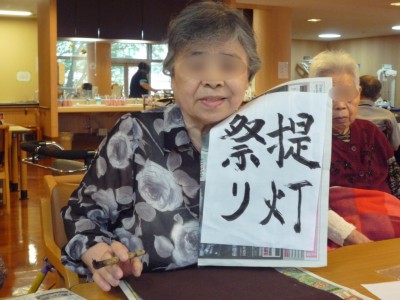 提灯
祭り